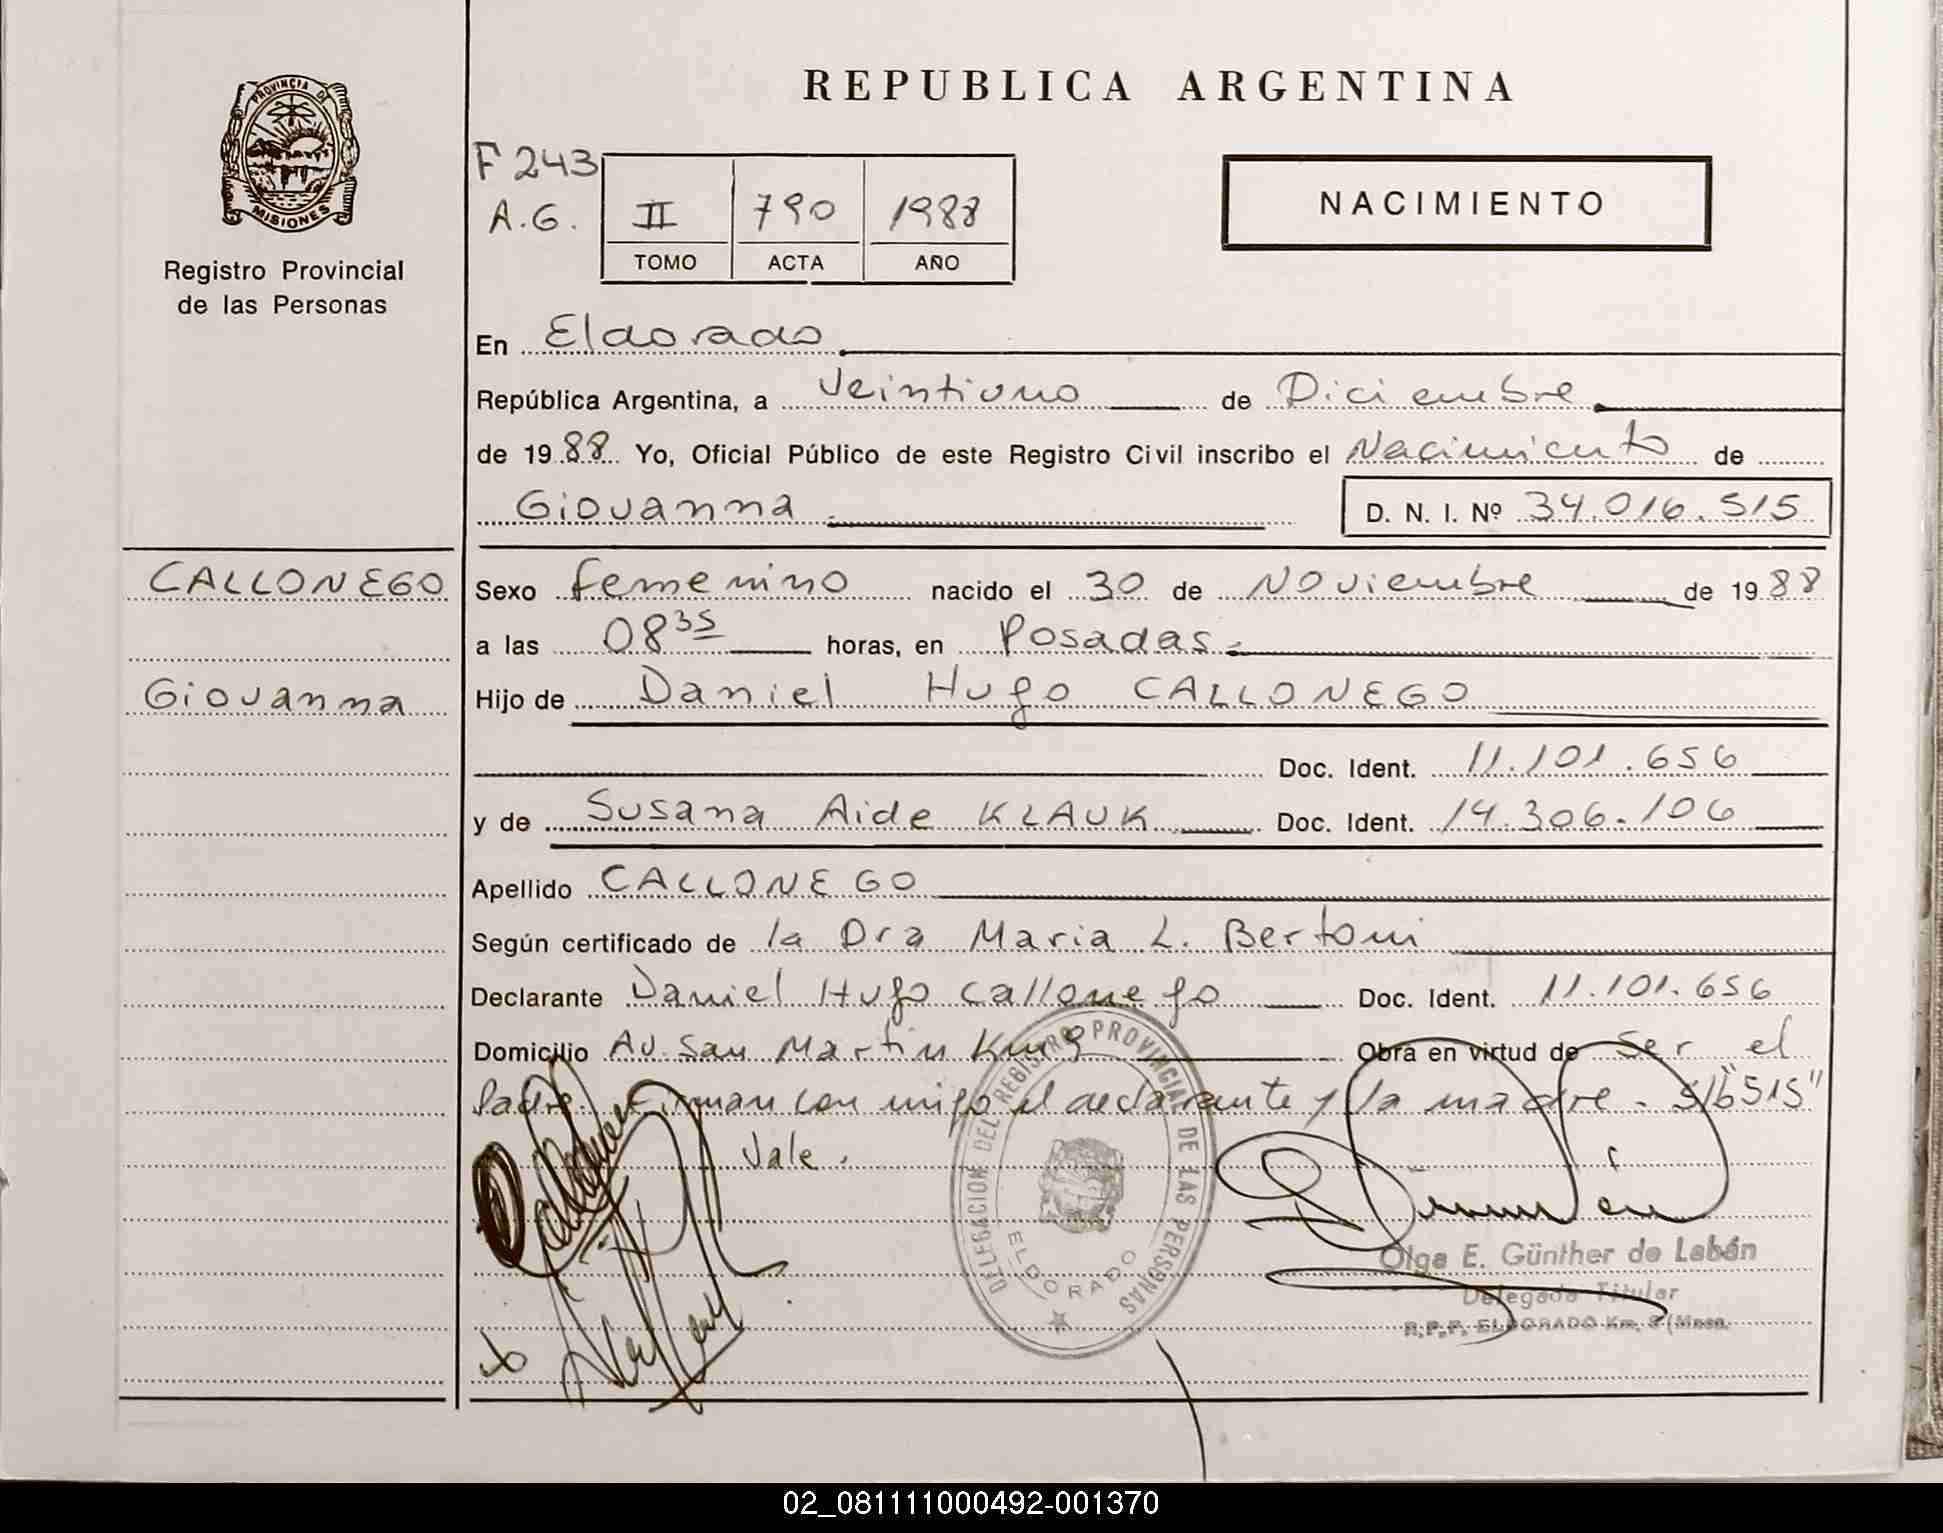 REPUBLICA ARGENTINA
PROVINCIA DE
MISIONES
Registro Provincial
de las Personas
F 243
A.G.
II 790 1988
TOMO ACTA AÑO
NACIMIENTO
En Eldorado
República Argentina, a Veintiuno de Diciembre
de 1988 Yo, Oficial Público de este Registro Civil inscribo el Nacimiento de
Giovanna D. N. I. Nº 34.016.515
CALLONEGO
Giovanna
Sexo femenino nacido el 30 de Noviembre de 1988
a las 08 35 horas, en Posadas
Hijo de Daniel Hugo CALLONEGO
Doc. Ident. 11.101.656
y de Susana Aide KLAUK Doc. Ident. 14.306.106
Apellido CALLONEGO
Según certificado de la Dra Maria L. Bertoni
Declarante Daniel Hugo Callonego Doc. Ident. 11.101.656
Domicilio Av San Martin Km 9 Obra en virtud de Ser el
Padre. Firman con migo el declarante y la madre. S/b "515"
Vale.
DELEGACION DEL REGISTRO PROVINCIAL DE LAS PERSONAS
ELDORADO
Olga E. Günther de Labán
Delegada Titular
R.P.P. ELDORADO Km. 9 (Mnes.
02_081111000492-001370